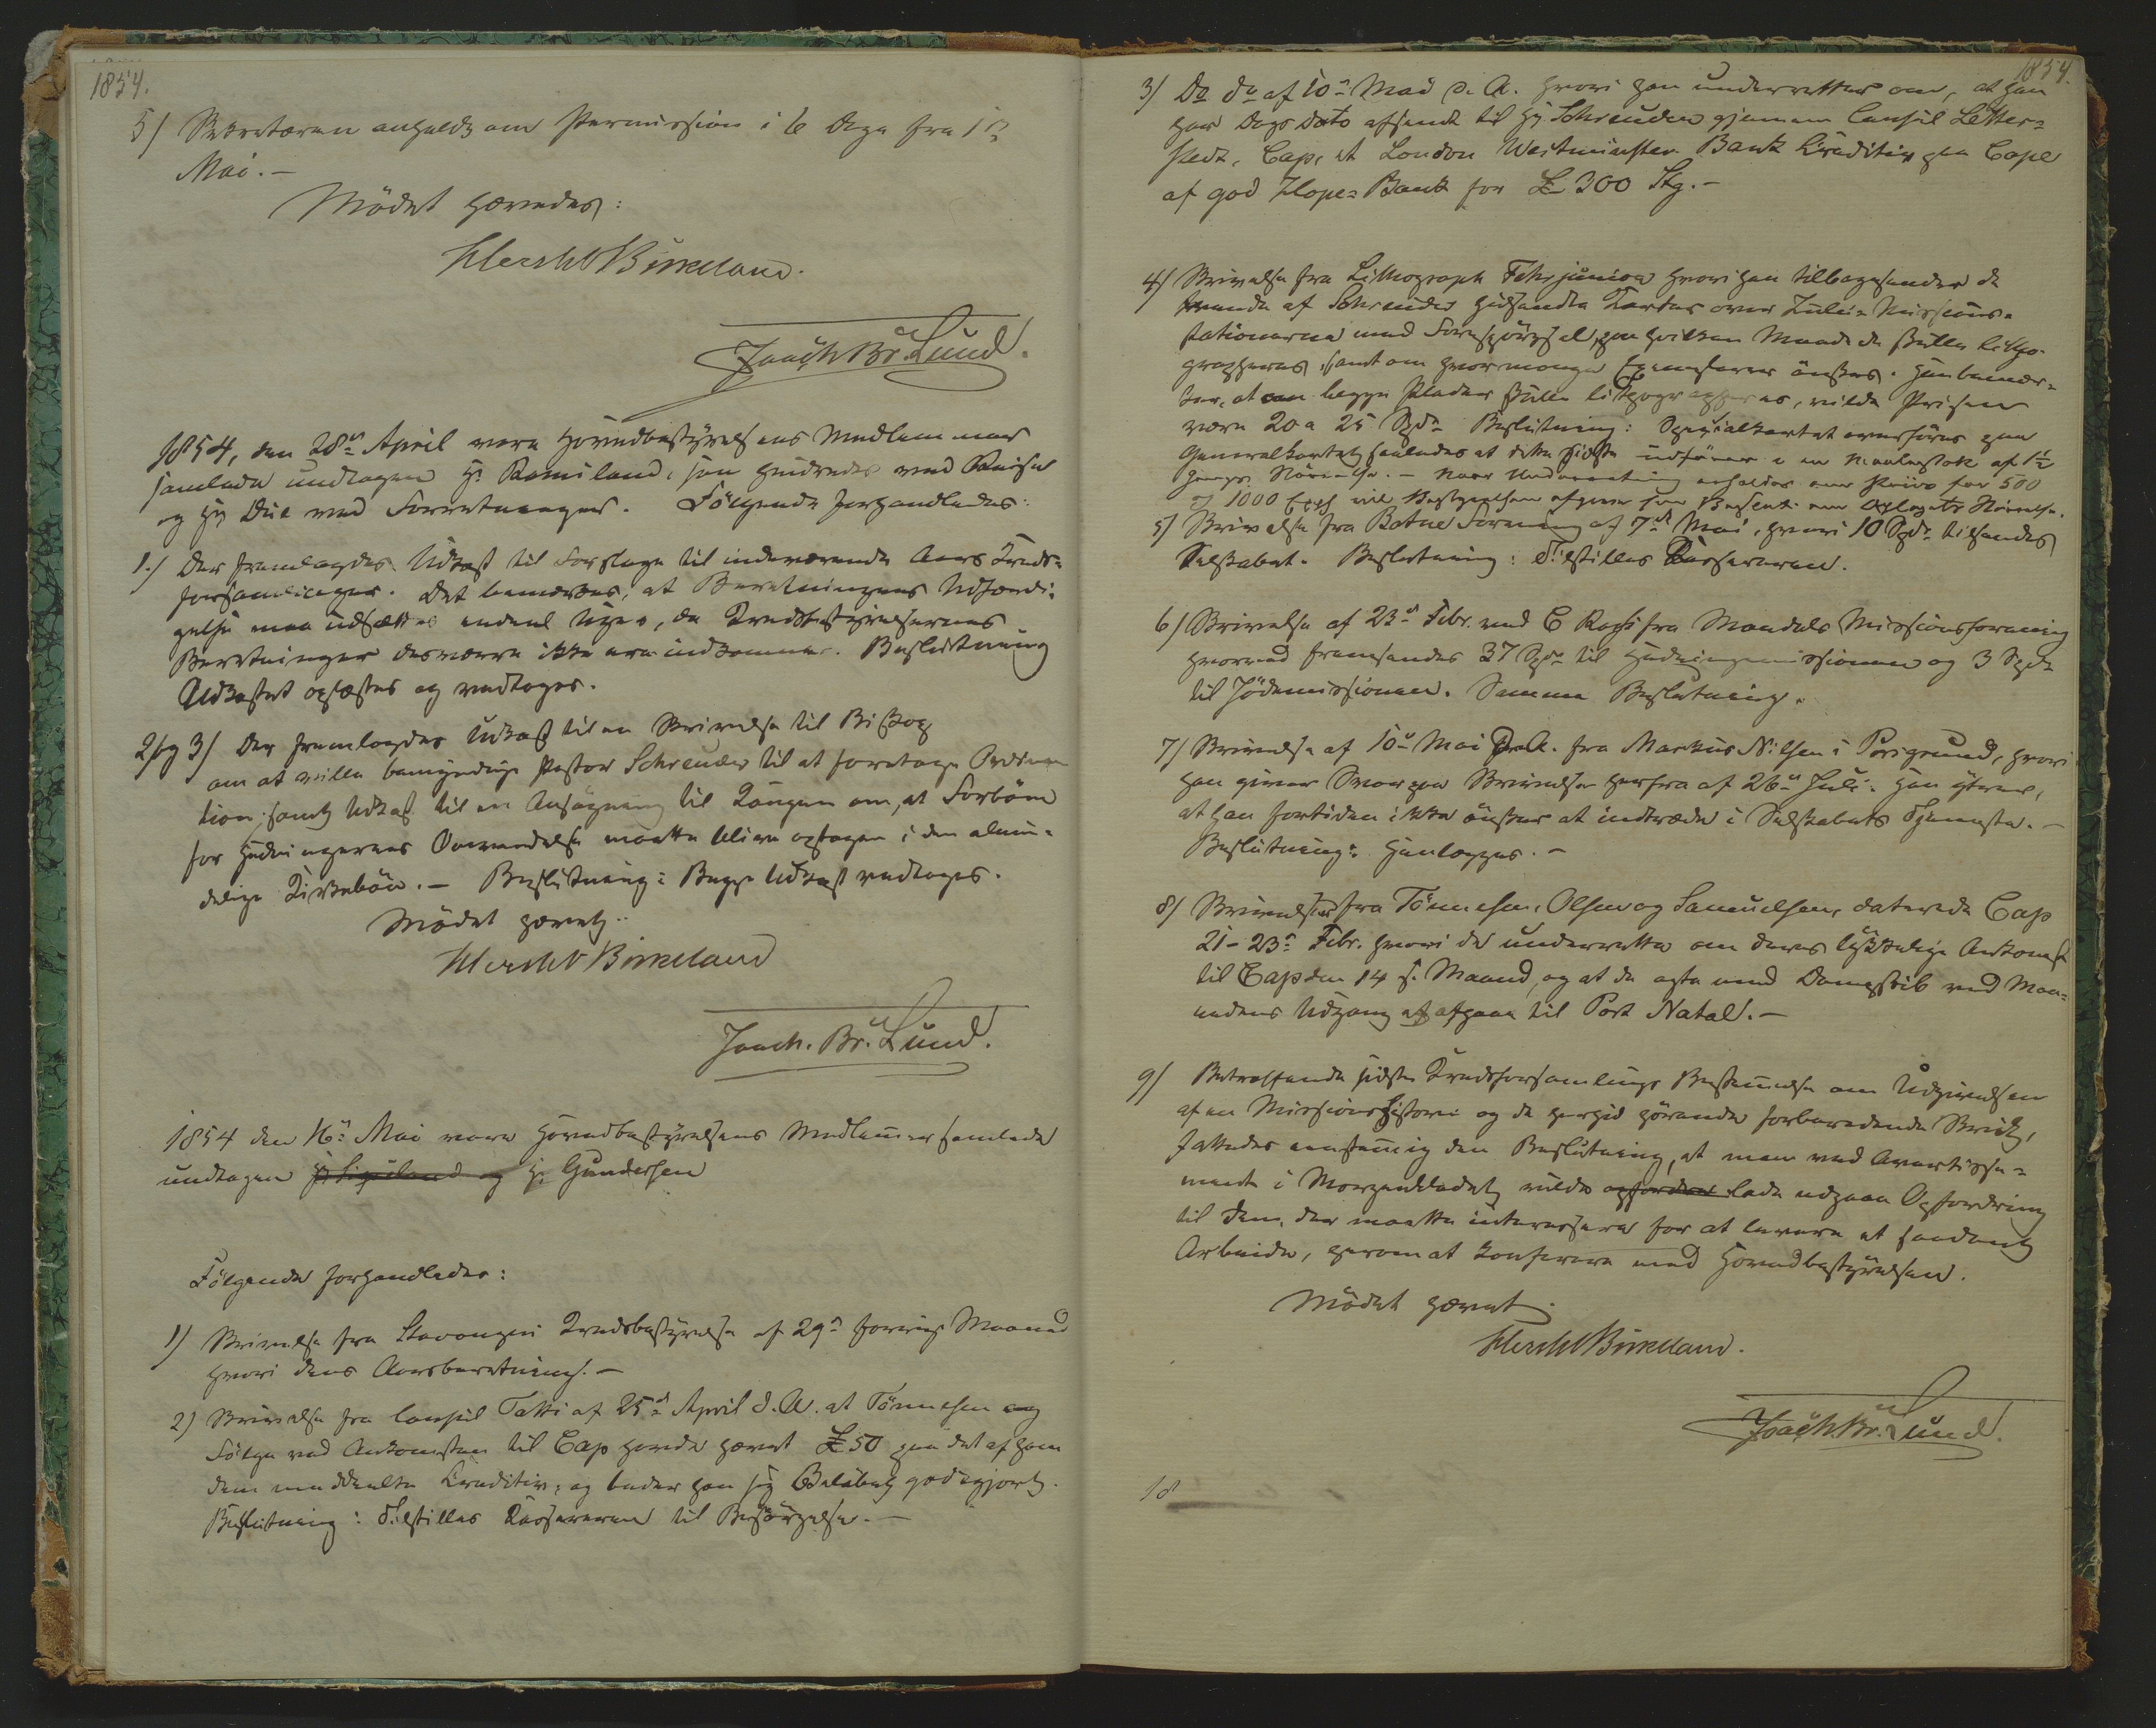 1854.
5/ Sekretæren anholdt om Permission i 6 Dage fra 1ste
Mai.—
Mödet hævedes:
Mersht Birkeland.
Joach Br. Lund.
1854, den 28de April vare Hovedbestyrelsens Medlemmer
samlede undtagen Hr. som hindredes ved Reise
og Hr Due ved Forretninger. Fölgende forhandledes:
1./ Der fremlagdes Udkast til Forslage til indeværende Aars Kreds-
forsamlinger. Det bemærkes, at Beretningens Udfærdi-
gelse maa udsættes endeel Uger, da Kredsbestyrelsernes
Beretninger desværre ikke ere indkomne. Beslutning
Udkastet oplæstes og vedtoges.
2/og 3/ Der fremlagdes Udkast til en Skrivelse til Biskop
om at ville bemyndige Pastor Schreuder til at foretage Ordina
tion; samt Udkast til en Ansögning til Kongen om, at Forbön
for Hedningernes Omvendelse maatte blive optagen i den almin-
delige Kirkebön.— Beslutning: Begge Udkast vedtoges.
Mödet hævet:
Mersht Birkeland
Joach. Br. Lund.
1854 den 16de Mai vare Hovedbestyrelsens Medlemmer samlede
undtagen og Hr. Gundersen
Fölgende forhandledes:
1) Skrivelse fra Stavanger Kredsbestyrelse af 29de forrige Maaned
hvori dens Aarsberetning.—
2) Skrivelse fra Consul Tatti af 25de April d.A. at Tönnesen og
Fölge ved Ankomsten til Cap havde hævet £ 50 paa det af ham
dem meddeelte Creditiv; og beder han sig Belöbet godtgjort.
Beslutning: Tilstilles Kassereren til Besörgelse.—
1854.
3/ Do do af 10de Mai d. A. hvori han underretter om, at han
har Dags Dato afsendt til Hr Schreuder gjennem Consul Letter-
stedt, Cap, et London Westminster Bank Creditiv paa Cape
af god Hope-Bank for £ 300 Stg.—
4/ Skrivelse fra Lithograph Fehr junior hvori han tilbagesender de
af Schreuder hidsendte Karter over Zulu-Missions-
stationerne med Forespörgsel, paa hvilken Maade de skulle litho-
grapheres, samt om hvor mange Exemplarer önskes. Han bemær-
ker, at om begge Plader skulle lithographeres, vilde Prisen
være 20 a 25 Spd. Beslutning: Specialkartet overföres paa
Generalkartet saaledes at dette sidste udföres i en Maalestok af 1½
Gange Störrelse.— Naar Underretning erholdes om Priis for 500
og 1000 Expl vil Bestyrelsen afgive sin om Oplagets Störrelse.
5) Skrivelse fra Botne Forening af 7de Mai, hvori 10 Spd. tilsendes
Selskabet. Beslutning: Tilstilles Kassereren.
6) Skrivelse af 23de Febr. med C fra Mandals Missionsforening
hvorved fremsendes 37 Spd. til Hedningemissionen og 3 Spd.
til Jödemissionen. Samme Beslutning.
7) Skrivelse af 10de Mai d. A. fra Markus Nilsen i Porsgrund, hvori
han giver Svar paa Skrivelse herfra af 26de Juli. Han ytrer,
at han fortiden ikke önsker at indtræde i Selskabets Tjeneste.—
Beslutning: Henlægges.—
8) Skrivelser fra Tönnesen, Olsen og Samuelsen, daterede Cap
21-23de Febr. hvori de underrette om deres lykkelige Ankomst
til Cap den 14 s. Maaned, og at de agte med Dampskib ved Maa-
nedens Udgang at afgaae til Port Natal.—
9) Betræffende sidste Kredsforsamlings Bestemmelse om Udgivelsen
af en Missionshistorie og de herhid hörende forberedende Skridt,
fattedes eenstemmig den Beslutning, at man ved Avertisse-
ment i Morgenbladet vilde opfordre lade udgaae Opfordring
til dem, der maatte interessere for at levere et saadant
Arbeide, herom at konferere med Hovedbestyrelsen.
Mödet hævet.
Mersht Birkeland.
Joach. Br. Lund.
18